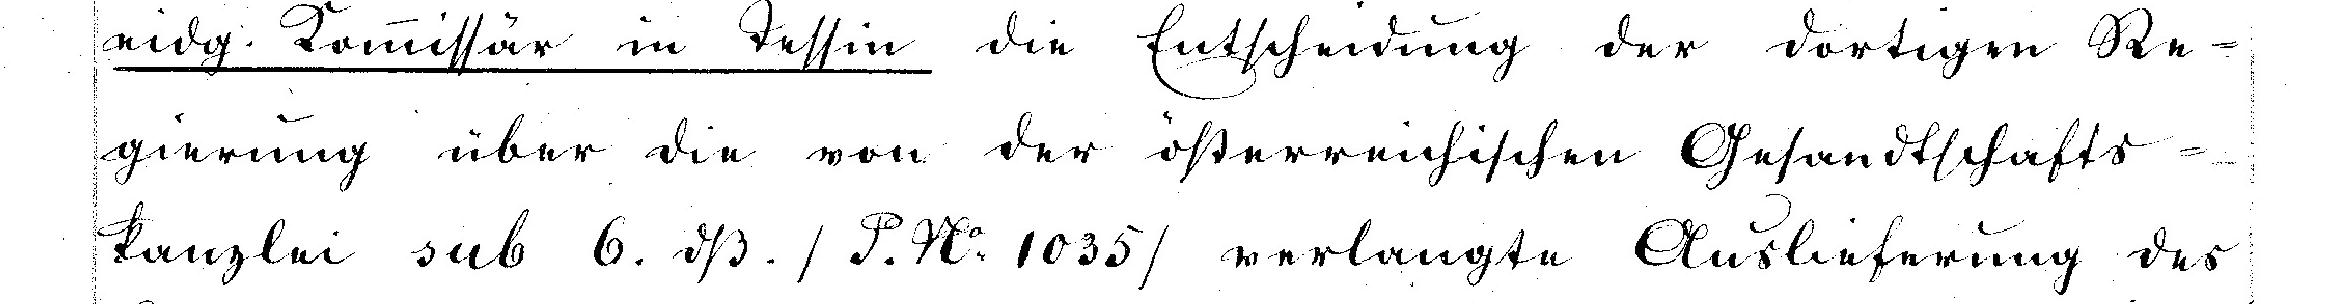 eidg. Kommissär in Tessin die Entscheidung der dortigen Re-
gierung über die von der österreichischen Gesandtschafts-
kanzlei sub 6. dß. / P. No. 1035/ verlangte Auslieferung des